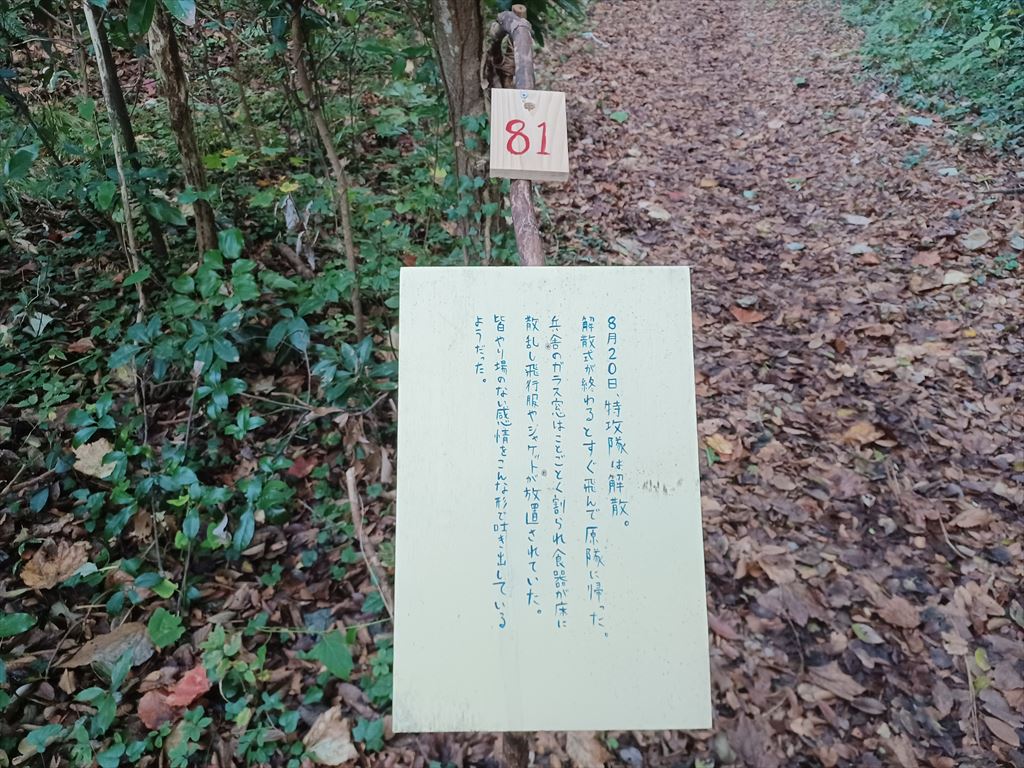 81
8月20日、特攻隊は解散。
解散式が終わるとすぐ飛んで原隊に帰った。
兵舎のガラス窓はことごとく割られ食器が床に
散乱し飛行服やジャケットが放置されていた。
皆やり場のない感情をこんな形で吐き出している
ようだった。